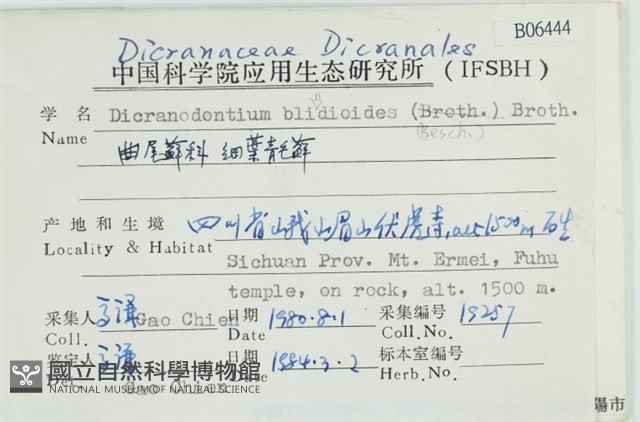 B06444
Dicranaceae Dicranales
中国科学院应用生态研究所 (IFSBH)
学名 Dicranodontium blidioides (Broth.) Broth.
Name (Besch.)
曲尾蘚科 細葉青毛蘚
产地和生境 四川省峨眉山伏虎寺,alt1500m 石生
Locality & Habitat Sichuan Prov. Mt. Ermei, Fuhu
temple, on rock, alt. 1500 m.
采集人 高謙 Gao Chien 日期 1980.8.1 采集编号 19257
Coll. Date Coll.No.
鉴定人 高謙 日期 1984.3.2 标本室编号
Det. Gao Chien Date Herb.No.
國立自然科學博物館
NATIONAL MUSEUM OF NATURAL SCIENCE
陽市